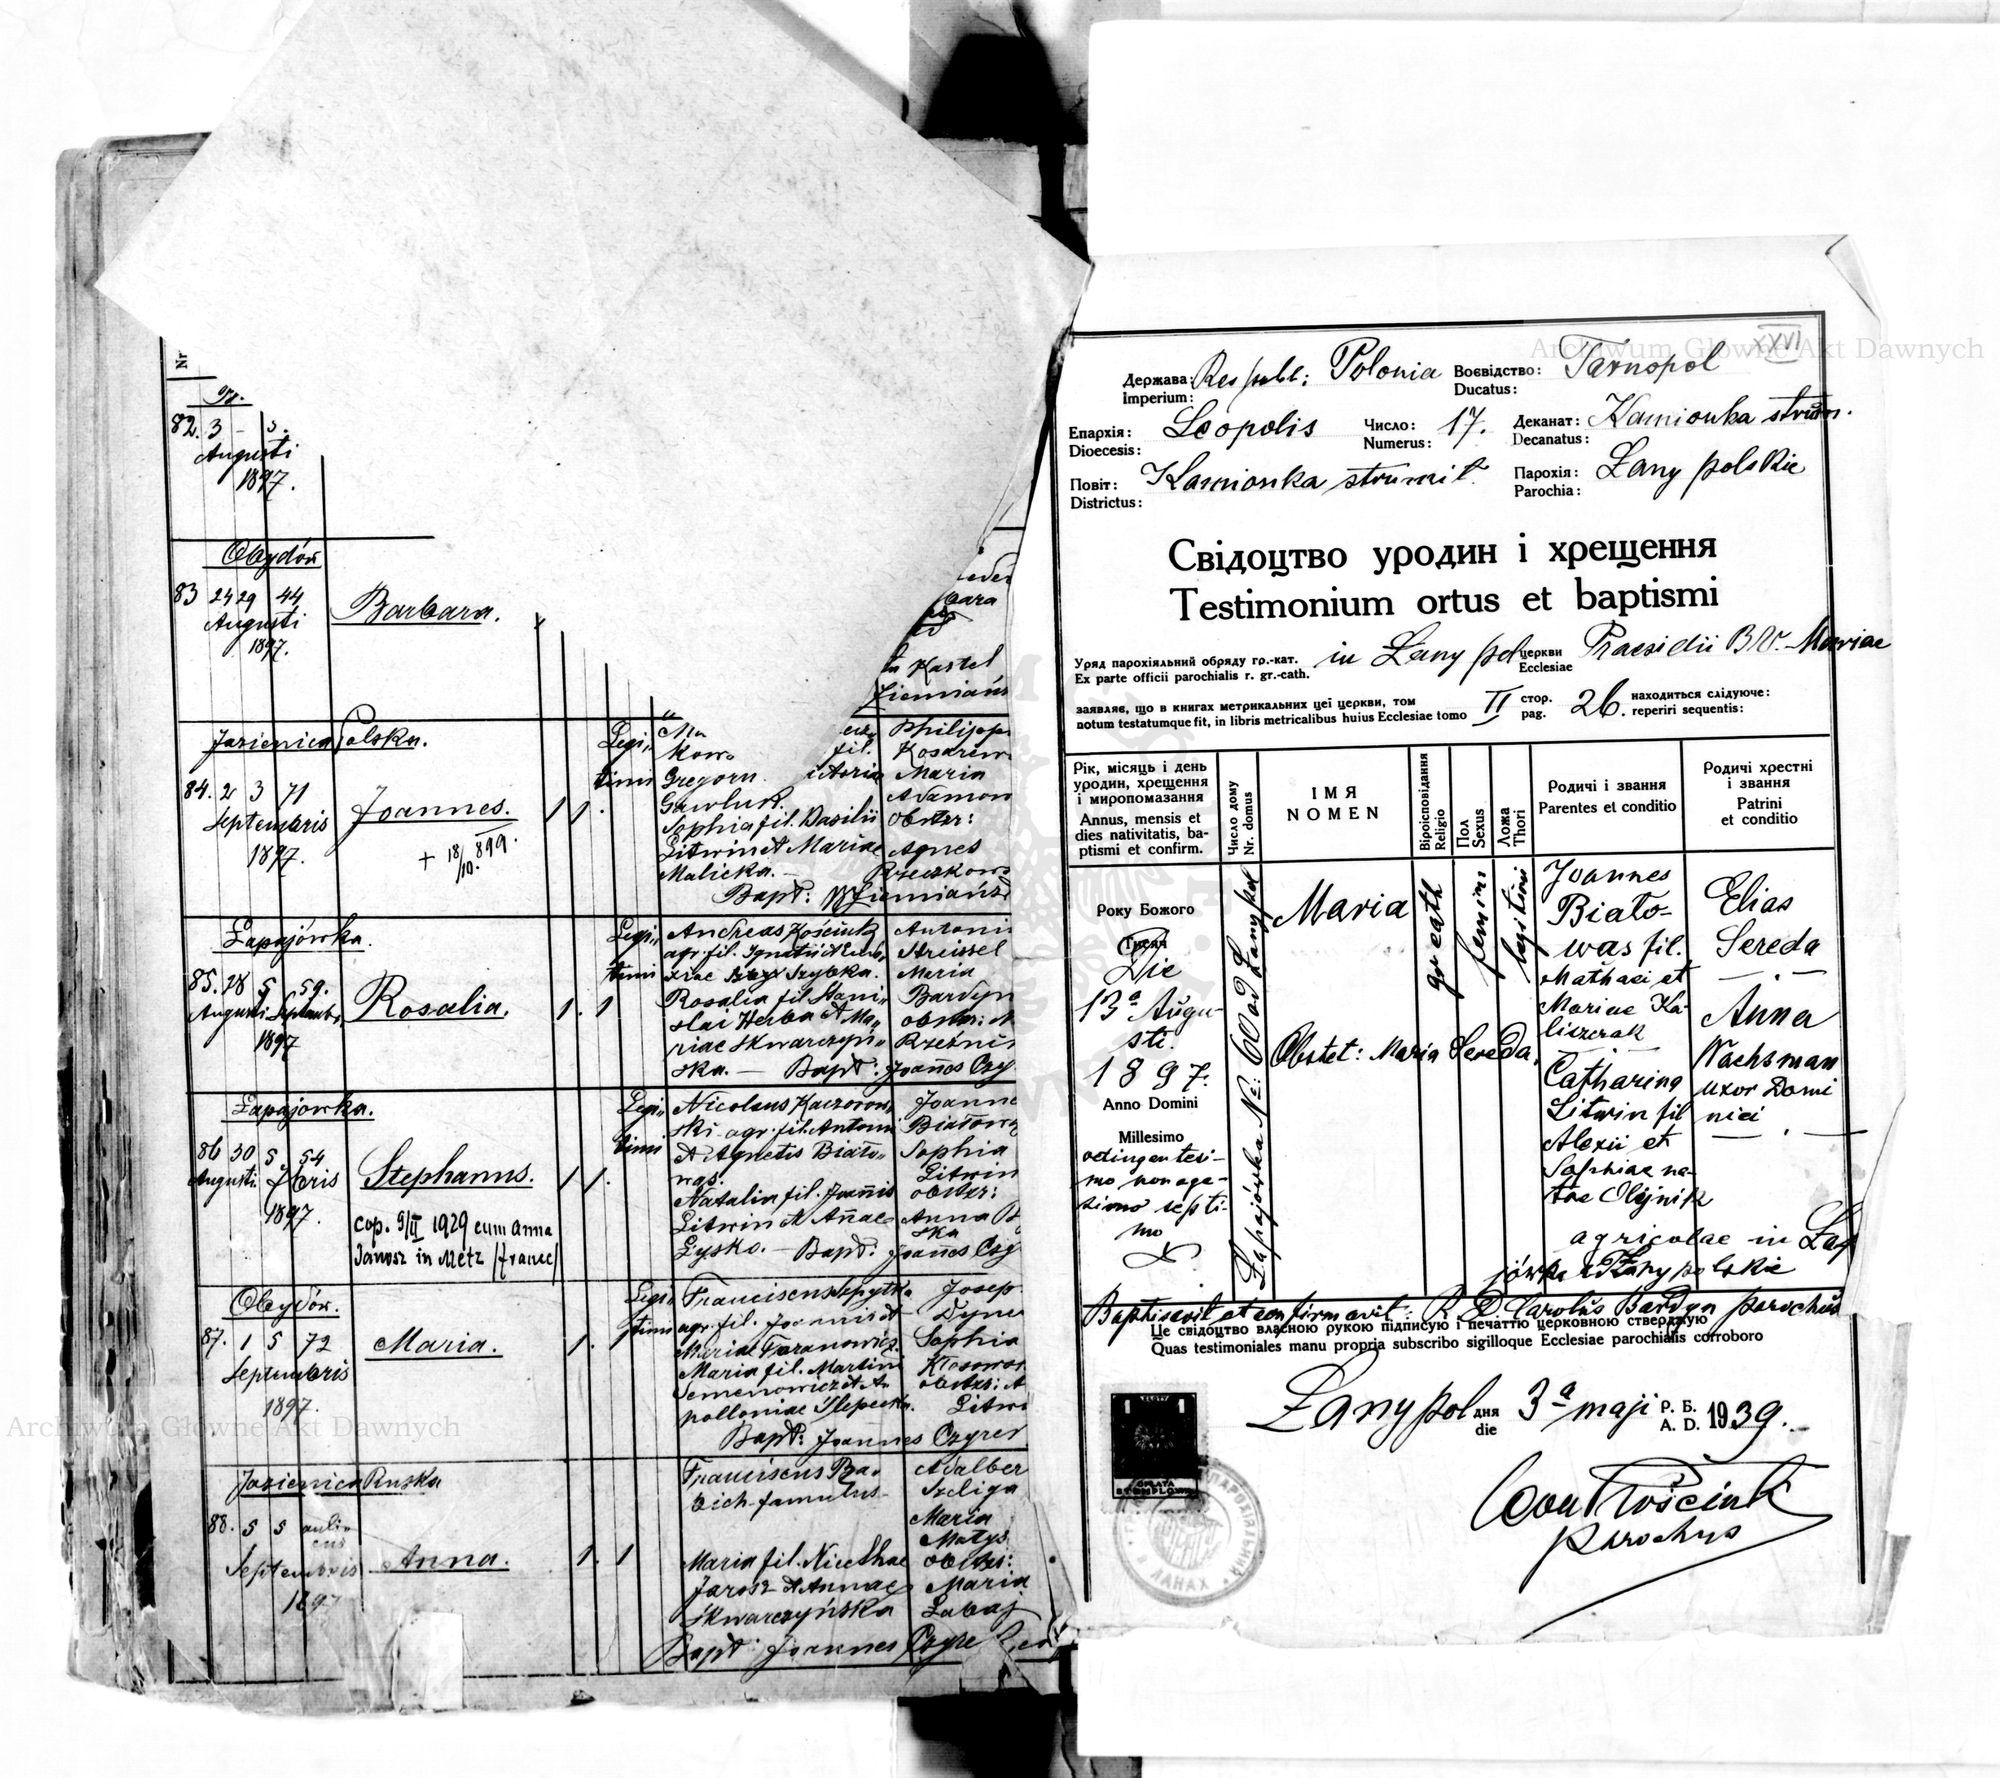 Nr
82. 3 - 3.
Augusti
1897.
Obydów
83 24 29 44
Augusti
1897.
Barbara.
bara
Kastel
Ziemiańs
Jazienica Polska.
84. 2 3 71
Septembris
1897.
Joannes.
+ 18/10. 899.
1 1.
Legi„
timi
Gregorii
Gawluk.
Sophia fil. Basilii
Litwin et Mariae
Malicka. —
Bapt: Ziemiańs
Philipp
Kosarew
Maria
Adamow
obstr:
Agnes
Rzeczkows
Łapajówka.
85. 28 5 59.
Augusti Septembr.
1897
Rosalia.
1. 1
Legi„
timi
Andreas Kościuk
agr. fil. Ignatii et
Szybka.
Rosalia fil. Stani„
slai Herba et Ma„
riae Skwarczyń„
ska. — Bapt: Joañes Czy
Antoni
Streissel
Maria
Bardyn
obstr:
Rzeźni
Łapajówka.
86 30 5 54
Augusti 7bris
1897.
Stephanus.
cop. 9/II 1929 cum Anna
Janosz in Metz /France/
1 1.
Legi„
timi
Nicolaus Kaczorow„
ski agr. fil. Antoni
et Agnetis Biało„
was.
Natalia fil. Joañis
Litwin et Añae
Łysko. — Bapt: Joañes Czy
Joanne
Białow
Sophia
Litwin
obstr:
Anna
ska
Obydów.
87. 1 5 72
Septembris
1897.
Maria.
1. 1.
Legi„
timi
Franciscus Szpytka
agr. fil. Joannis et
Mariae Taranowicz.
Maria fil. Martini
Semenowicz et A„
polloniae Slepecka.
Bapt: Joannes Czyrer
Josep
Dyne
Sophia
Kłosows
obstr: A
Litwi
Jazienica Ruska
88. 5 5 auli„
cus
Septembris
1897
Anna.
1. 1
Franciscus Ba„
bich famulus
Maria fil. Nicethae
Jarosz et Annae
Skwarczyńska
Bapt: Joannes Czyre
Adalber
Szeliga
Maria
Matys
obstr:
Maria
Łabaj
XXVI
Держава: Respubl: Polonia Воєвідство: Tarnopol
Imperium: Ducatus:
Епархія: Leopolis Число: 17. Деканат: Kamionka strum.
Dioecesis: Numerus: Decanatus:
Повіт: Kamionka strumił. Парохія: Łany polskie
Districtus: Parochia:
Свідоцтво уродин і хрещення
Testimonium ortus et baptismi
Уряд парохіяльний обряду гр.-кат. in Łany pol церкви Praesidii B.V. Mariae
Ex parte officii parochialis r. gr.-cath. Ecclesiae
заявляє, що в книгах метрикальних цеї церкви, том II стор. 26. находиться слідуюче:
notum testatumque fit, in libris metricalibus huius Ecclesiae tomo pag. reperiri sequentis:
Рік, місяць і день
уродин, хрещення
і миропомазання
Annus, mensis et
dies nativitatis, ba-
ptismi et confirm.
Число дому
Nr. domus
ІМЯ
NOMEN
Віроісповідання
Religio
Пол
Sexus
Ложа
Thori
Родичі і звання
Parentes et conditio
Родичі хрестні
і звання
Patrini
et conditio
Року Божого
Тисяч
Die
13ª Augu-
sti.
1897.
Anno Domini
Millesimo
octingentesi-
mo nonage-
simo septi-
mo
Łapajówka №: 60 ad Łany pol
Maria
Obstet: Maria Sereda.
gr cath
femini
legitimi
Joannes
Biało-
was fil.
Mathaei et
Mariae Ka-
liszczak
Catharina
Litwin fil
Alexii et
Sophiae na-
tae Olijnik
agricolae in Łap
jówka Łany polskie
Elias
Sereda
— . —
Anna
Wachsman
uxor Domi
nici
— . —
Baptisavit et confirmavit: R. D. Carolus Bardyn parochus
Це свідоцтво власною рукою підписую і печаттю церковною стверджую
Quas testimoniales manu propria subscribo sigilloque Ecclesiae parochialis corroboro
Łany pol дня 3ª maji Р. Б. 1939.
die A. D.
Kościuk
parochus
1 1
OPŁATA
STEMPLOWA
ПАРОХІЯЛЬНИЙ
ЛАНАХ
Archiwum Główne Akt Dawnych
Archiwum Główne Akt Dawnych